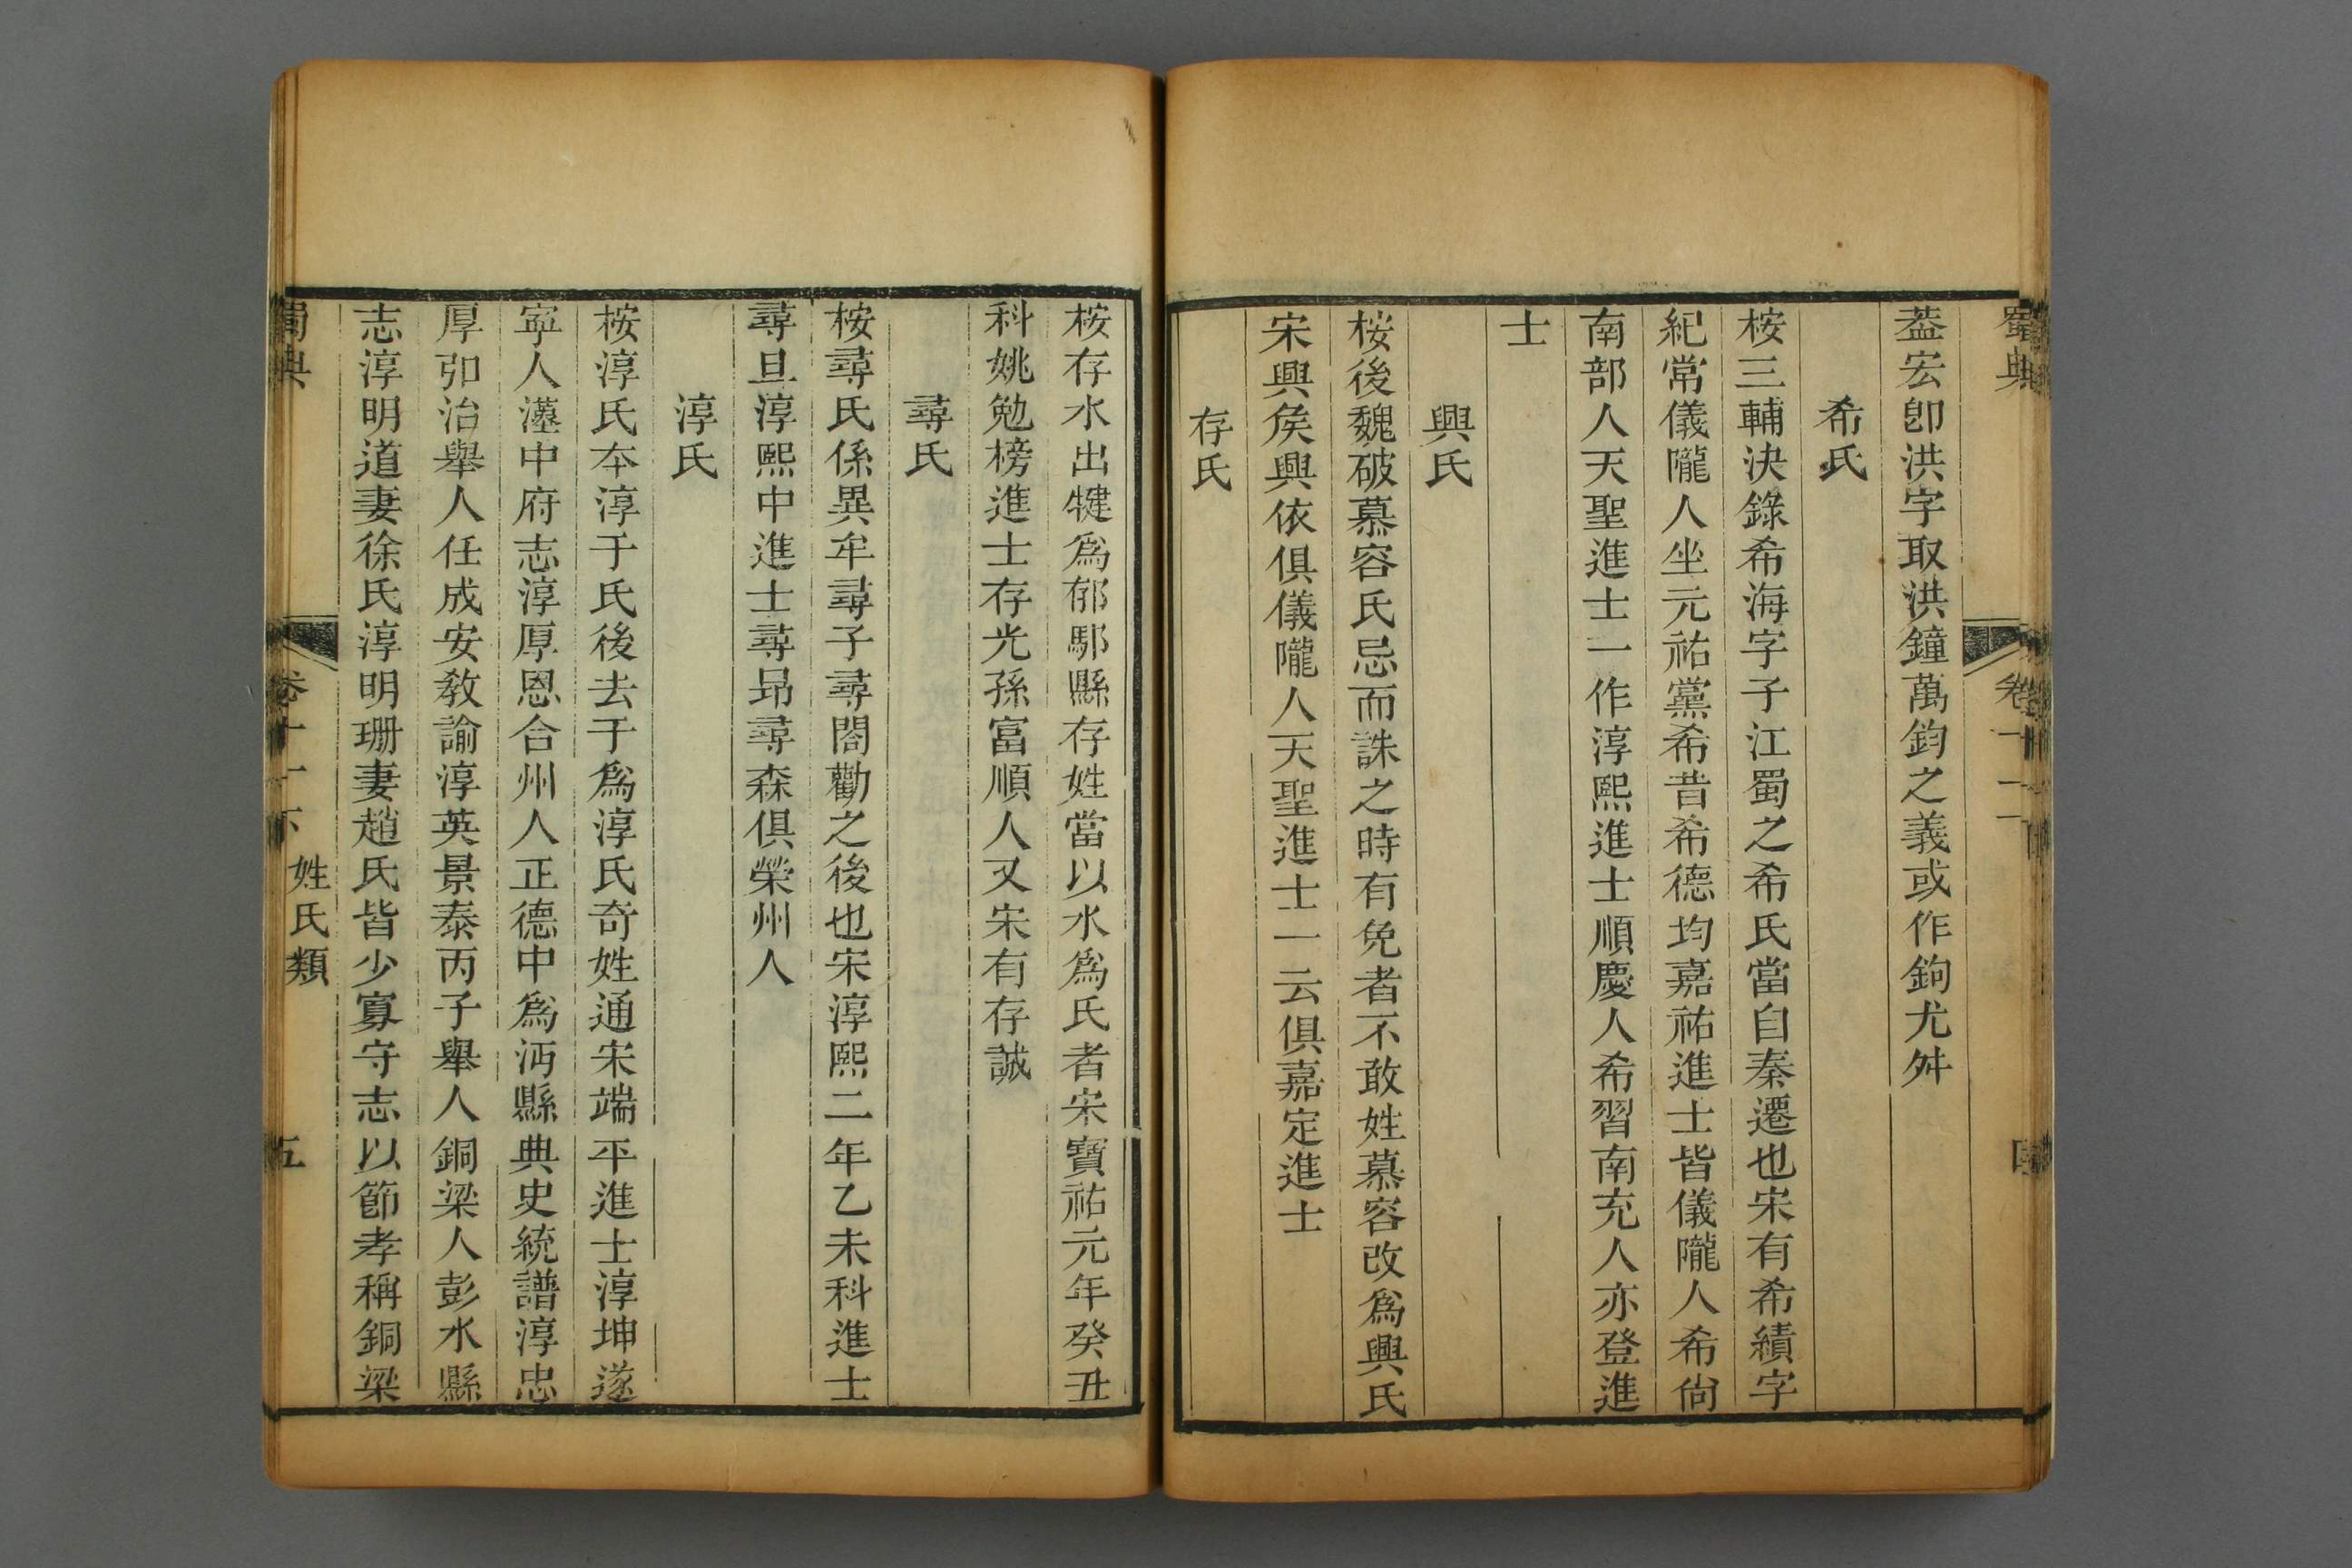 蜀典
卷十一
葢宏卽洪字取洪鐘萬鈞之義或作鉤尤舛
希氏
桉三輔決錄希海字子江蜀之希氏當自秦遷也宋有希績字
紀常儀隴人坐元祐黨希昔希德均嘉祐進士皆儀隴人希尙
南部人天聖進士一作淳熙進士順慶人希習南充人亦登進
士
興氏
桉後魏破慕容氏忌而誅之時有免者不敢姓慕容改爲興氏
宋興矦興依俱儀隴人天聖進士一云俱嘉定進士
存氏
桉存水出犍爲郁鄢縣存姓當以水爲氏者宋寶祐元年癸丑
科姚勉榜進士存光孫富順人又宋有存誠
尋氏
桉尋氏係異牟尋子尋閤勸之後也宋淳熙二年乙未科進士
尋旦淳熙中進士尋昻尋森俱榮州人
淳氏
桉淳氏本淳于氏後去于爲淳氏奇姓通宋端平進士淳坤遂
寧人漢中府志淳厚恩合州人正德中爲沔縣典史統譜淳忠
厚弘治舉人任成安敎諭淳英景泰丙子舉人銅梁人彭水縣
志淳明道妻徐氏淳明珊妻趙氏皆少寡守志以節孝稱銅梁
蜀典
卷十一下
姓氏類
五